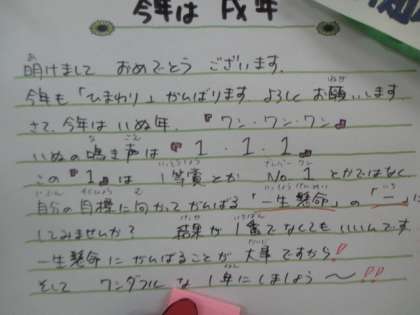 今年は 戌年
明けまして おめでとう ございます.
今年も「ひまわり」がんばります よろしく お願いします.
さて、今年は いぬ年. 『ワン・ワン・ワン』
いぬの 鳴き声は 『1・1・1』
この『1』は 1等賞とか No.1 とかではなく
自分の目標に向かってがんばる「一生懸命」の「一」に
してみませんか? 結果が1番でなくてもいいんです.
一生懸命にがんばることが大事ですから!!
そして ワンダフル な 1年にしましょう〜!!